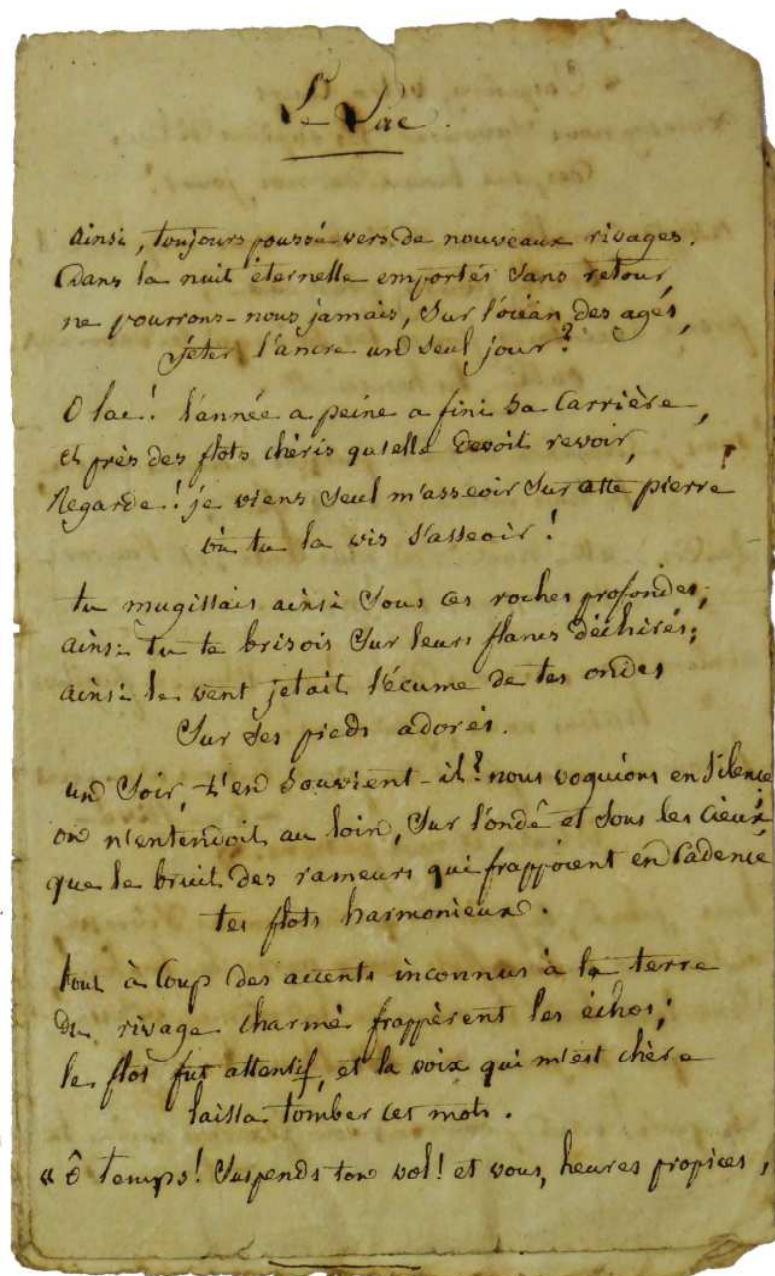 Le Lac.
ainsi, toujours poussés vers de nouveaux rivages.
Dans la nuit éternelle emportés sans retour,
ne pourrons-nous jamais, sur l'océan des ages,
jeter l'ancre und seul jour?
O lac! l'année a peine a fini sa carrière,
et près des flots chéris qu'elle devoit revoir,
Regarde! je viens seul m'asseoir sur cette pierre
où tu la vis s'asseoir!
tu mugissais ainsi sous ces roches profondes;
ainsi tu te brisois sur leurs flancs déchirés;
ainsi le vent jetait l'écume de tes ondes
sur ses pieds adorés.
und soir, t'en souvient-il? nous voguions en silence
on n'entendoit au loin, sur l'onde et sous les cieux,
que le bruit des rameurs qui frappoient en cadence
tes flots harmonieux.
tout à coup des accents inconnus à la terre
du rivage charmé frappèrent les échos;
le flot fut attentif, et la voix qui m'est chère
laissa tomber ces mots.
« ô temps! suspends ton vol! et vous, heures propices,